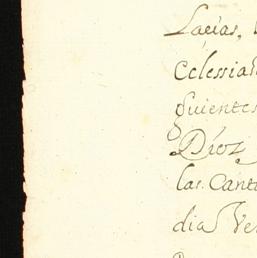 Lacias,
Eclessias
guientes
Dioz
las Canta
dia Ve